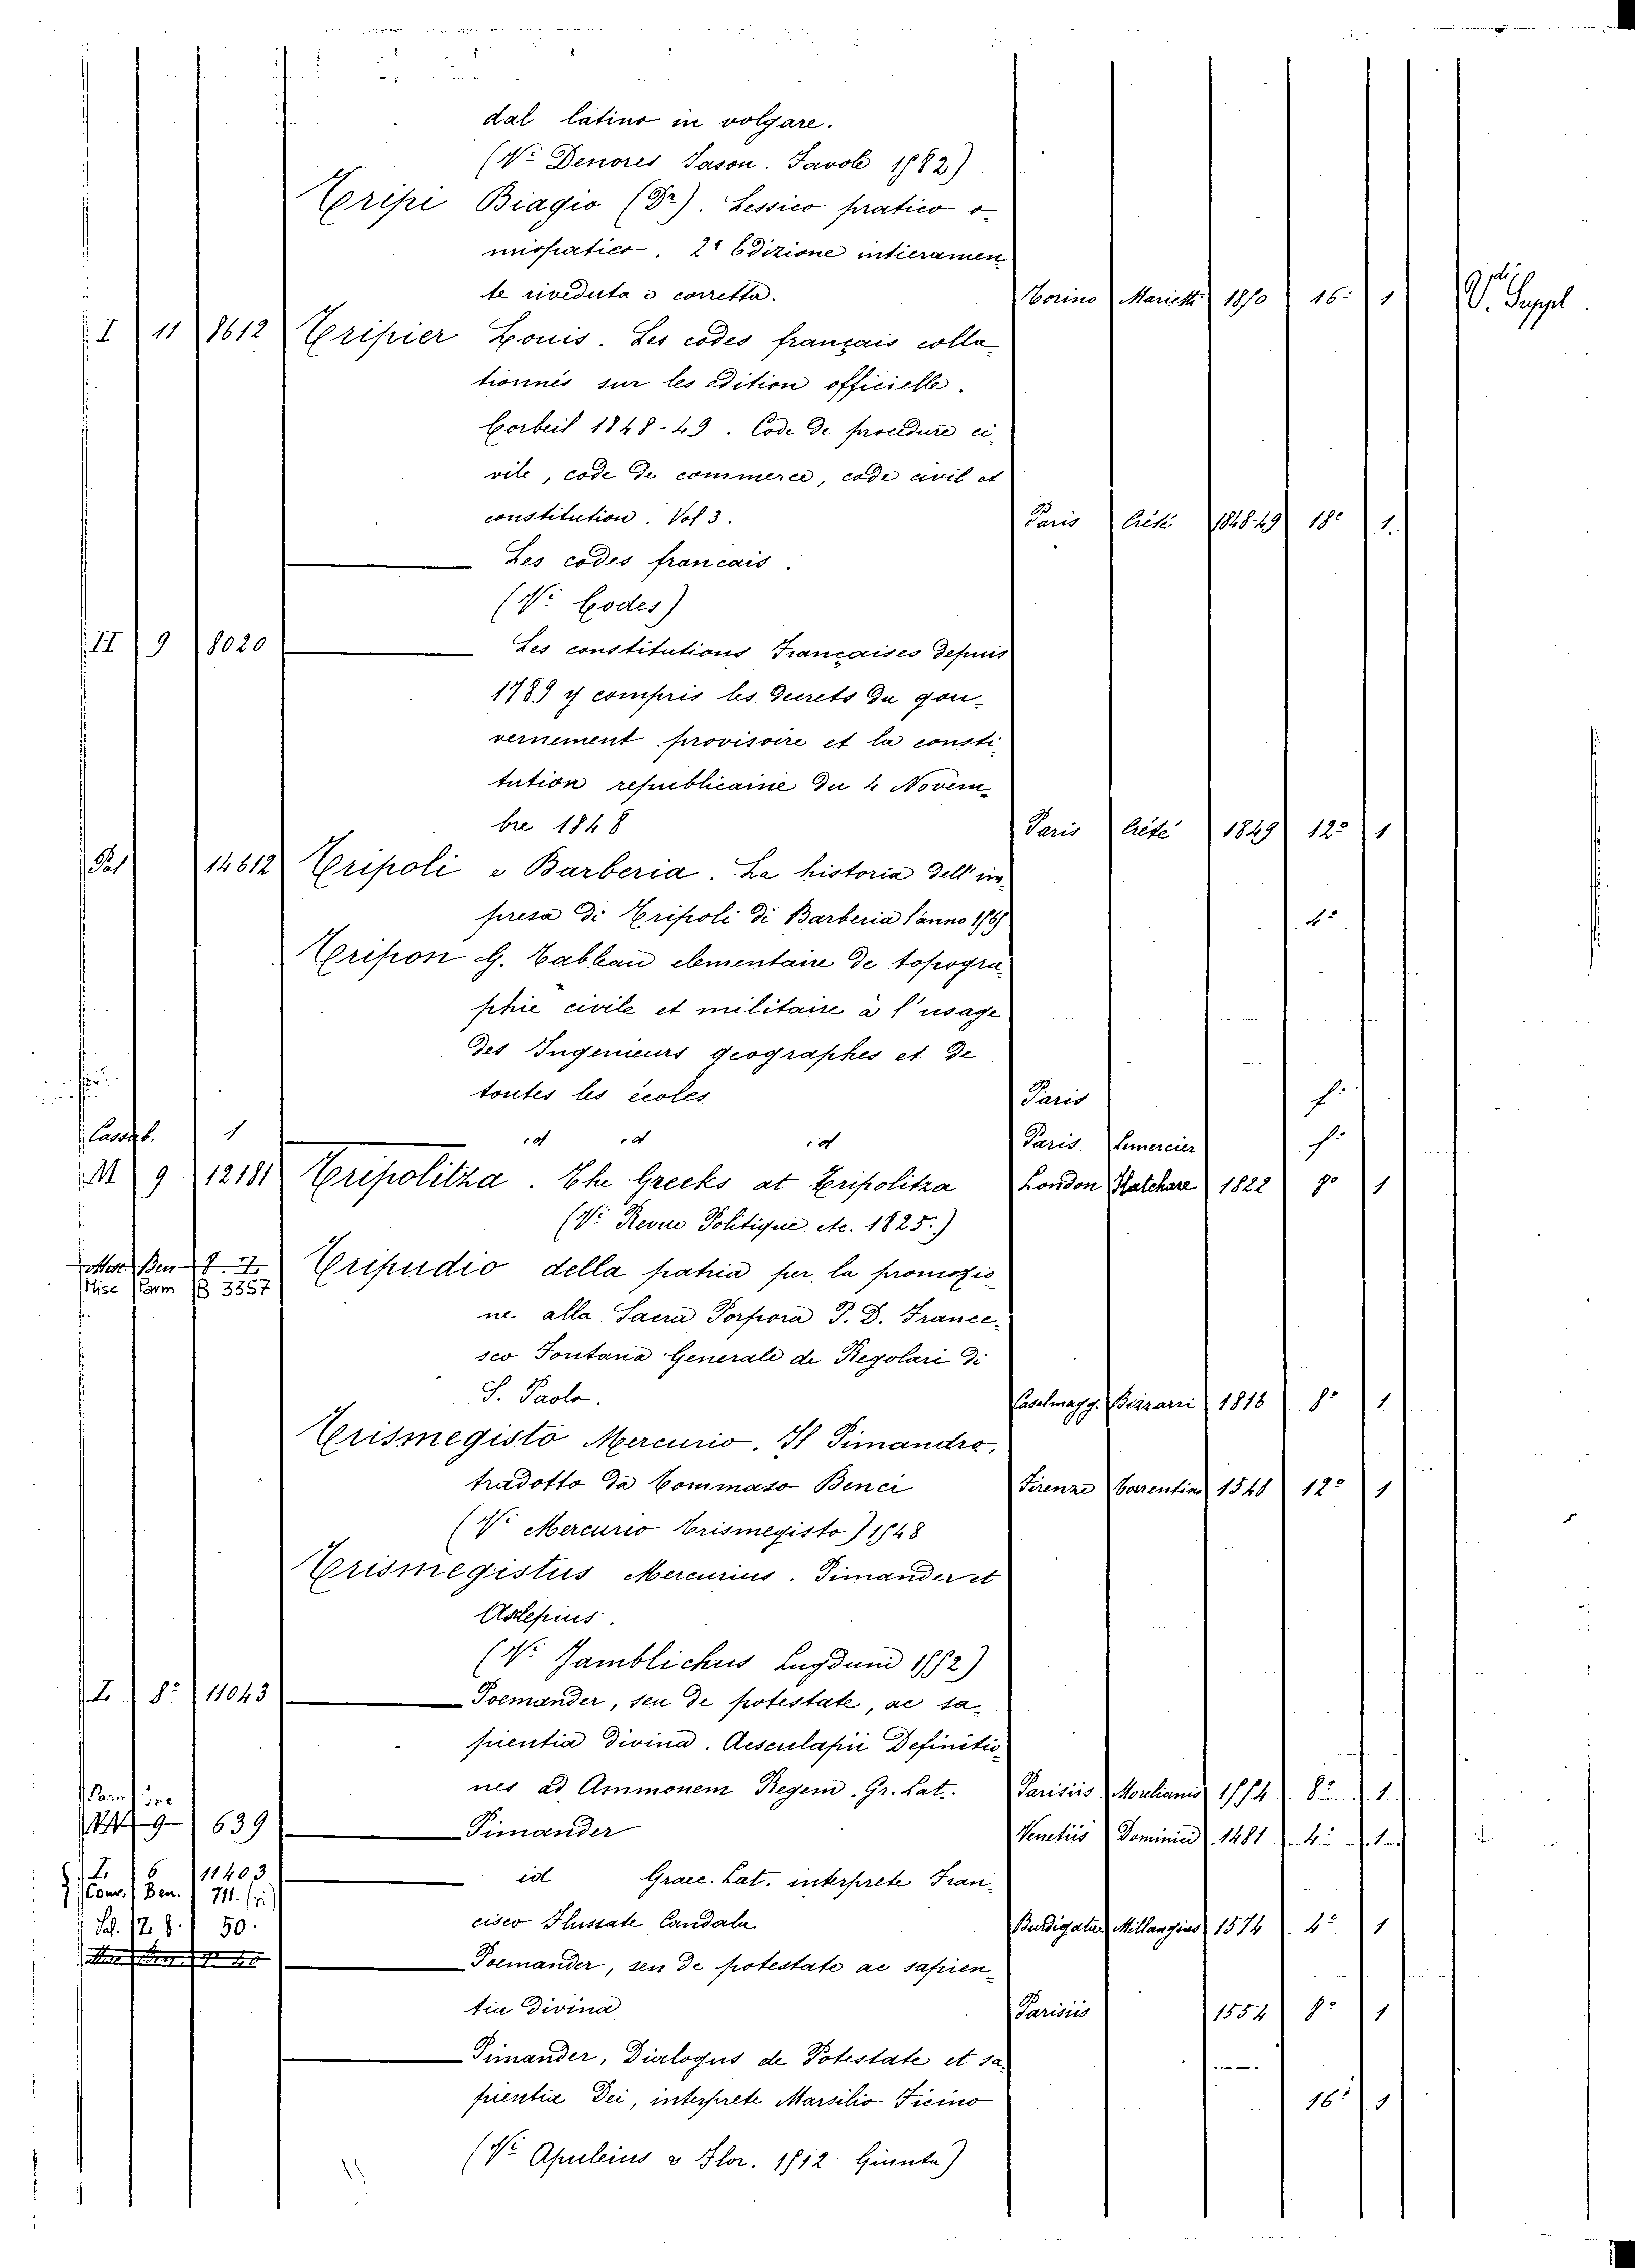 dal latino in volgare.
(Vi Denores Jason. Tavole 1582)
Tripi Biagio (Dr). Lessico pratico o-
miopatico. 2a Edizione intieramen-
te riveduta e corretta. Torino Marietti 1870 16° 1 V. Suppl
I 11 8612 Tripier Louis. Les codes français colla-
tionnés sur les edition officielle.
Corbeil 1848-49. Code de procedure ci-
vile, code de commerce, code civil et
constitution. Vol 3. Paris Crété 1848.49 18° 1.
Les codes francais.
(Vi Codes)
II 9 8020 Les constitutions Françaises depuis
1789 y compris les decrets du gou-
vernement provisoire et la consti-
tution republicaine du 4 Novem-
bre 1848 Paris Crété. 1849 12° 1
14612 Tripoli e Barberia. La historia dell'im-
presa di Tripoli di Barberia l'anno 4°
Tripon G. Tableau elementaire de topogra-
phie civile et militaire à l'usage
des Ingenieurs geographes et de
toutes les écoles Paris f°
Casagb. 1 id id id Paris Lemercier f°
M 9 12181 Tripolitza. The Greeks at Tripolitza London Hatchare 1822 8° 1
(Vi Revue Politique etc. 1825.)
Mor. Ben 8. Tripudio della patria per la promozio-
Misc Parm B 3357
ne alla Sacra Porpora P. D. France-
sco Fontana Generale de Regolari di
S. Paolo. Casalmagg. Bizzarri 1816 8° 1
Trismegisto Mercurio. Il Pimandro,
tradotto da Tommaso Benci Firenze Torrentino 1548 12° 1
(Vi Mercurio Trismegisto) 1548
Trismegistus Mercurius. Pimander et
Asclepius.
(Vi Jamblichus Lugduni 1552)
I 8° 11043 Poemander, seu de potestate, ac sa-
pientia divina. Aesculapii Definitio-
nes ad Ammonem Regem. Gr. Lat. Parisiis Morelianis 1554 8° 1
Parm
9 639 Pimander Venetiis Dominici 1481 4° 1
I 6 11403 id Graec. Lat. interprete Fran-
Com. Ben. 711.
cisco Flussate Candala Burdigalae Millangius 1574 4° 1
8. 50.
Poemander, seu de potestate ac sapien-
tia divina Parisiis 1554 8° 1
Pimander, Dialogus de Potestate et sa-
pientia Dei, interprete Marsilio Ficino 16° 1
(Vi Apuleius Flor. 1512 Giunta)